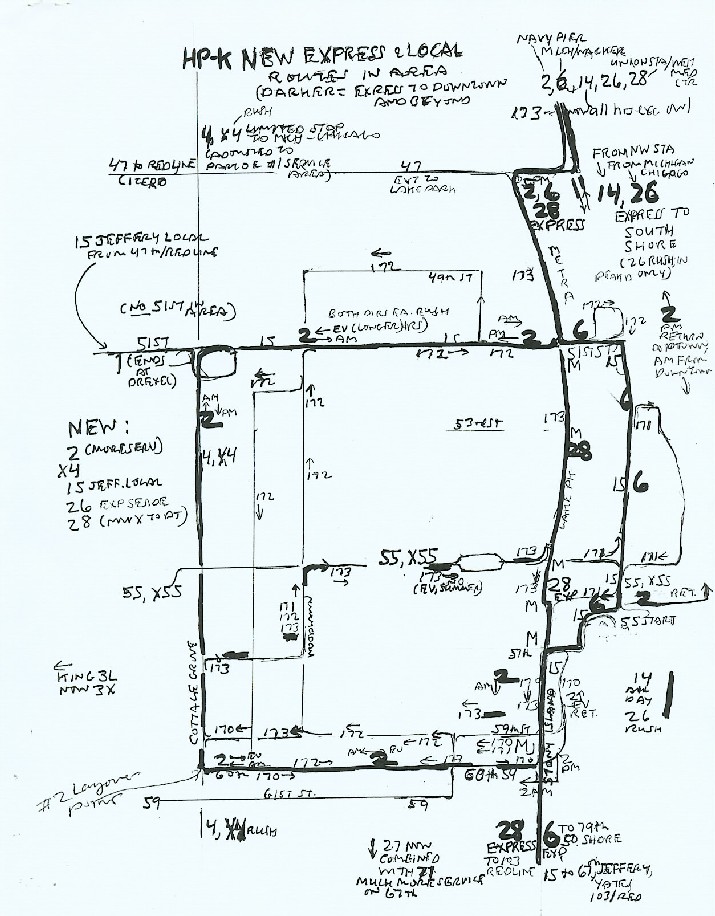 HP-K NEW EXPRESS & LOCAL
ROUTES IN AREA
(DARKER = EXPRES TO DOWNTOWN
AND BEYOND
NAVY PIER
MICH/WACKER
UNION STA/
2, 6, 14, 26, 28
173
RUSH
4, X4 LIMITED STOP
TO MICH-CHICAGO
AREA)
47 TO REDLINE
(CICERO
47
EXT TO
LAKE PARK
FROM NW STA
FROM MICHIGAN
CHICAGO
PM
2, 6
28
EXPRESS
14, 26
EXPRESS TO
SOUTH
SHORE
(26 RUSH IN
PEAK D ONLY)
15 JEFFERY LOCAL
FROM 47TH/REDLINE
172
49TH ST
173
METRA
(NO 51ST IN
AREA)
BOTH DIRS EA. RUSH
EV (LONGER HRS)
AM
AM
172
172
2
AM
RETURN
AM FROM
DOWNTOWN
51ST
15
2
15
PM
2
6
172
172
51ST ST
15
(ENDS
AT
DREXEL)
172
M
M
AM
2
AM
172
53RD ST
173
6
171
NEW:
2 (MORE SERV)
X4
15 JEFF. LOCAL
26 EXP SE SHORE
28 (NOW X TO DT)
4, X4
172
172
M
28
LAKE PK
15
6
55, X55
173
55, X55
173
(EV, SUMMER)
173
M
171
171
15
55, X55
171
172
173
173
28
EXP
171
M
6
2
RET.
55 START
M
57TH
15
173
COTTAGE GROVE
KING 3L
NOW 3X
AM
2
170
173
173
STONY ISLAND
170
2
EV
RET.
14
ALL
DAY
26
RUSH
170
173
172
59TH ST
172
170
M
2
EV
AM
172
AM
2
EV
172
60TH
170
60TH ST
170
2
PM
2 AM
#2 Layover
point
59
61ST ST.
59
4, X4 RUSH
27 NOW
COMBINED
WITH 71
MUCH MORE SERVICE
ON 67TH
28
EXPRESS
TO 103
REDLINE
6
EXP
TO 79TH
SO SHORE
15 TO 67, JEFFERY,
YATES
103/RED